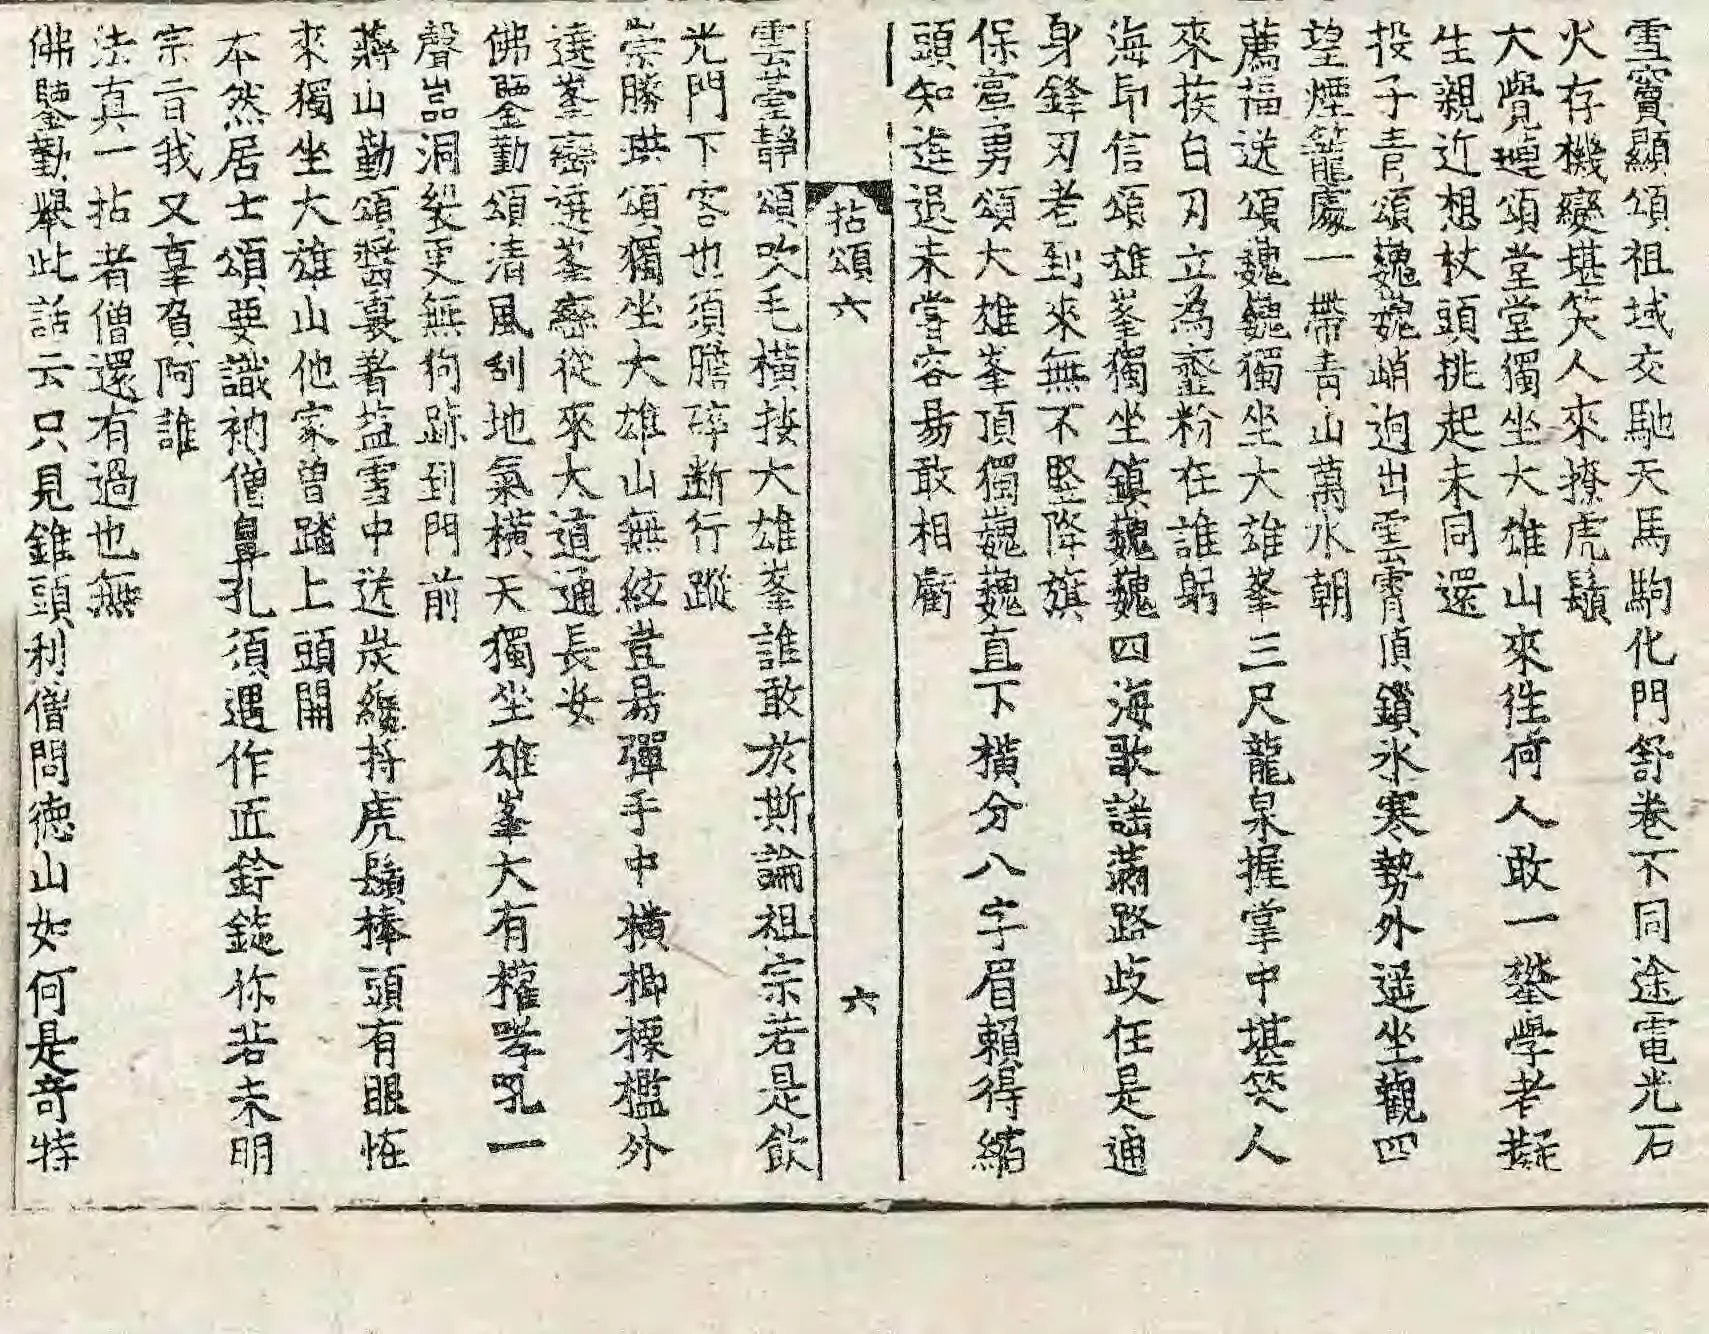 雪竇顯頌祖域交馳天馬駒化門舒卷不同途電光石
火存機變堪笑人來撩虎鬚
大覺璉頌堂堂獨坐大雄山來往何人敢一攀學者擬
生親近想杖頭挑起未同還
投子青頌巍巍峭逈出雲霄頂鎖氷寒勢外遥坐觀四
望煙籠處一帶青山萬水朝
薦福送頌巍巍獨坐大雄峯三尺龍泉握掌中堪笑人
來挨白刃立為虀粉在誰躬
海印信頌雄峯獨坐鎮巍巍四海歌謡滿路歧任是通
身鋒刃老到來無不竪降旗
保寧勇頌大雄峯頂獨巍巍直下橫分八字眉賴得縮
頭知進退未甞容易敢相虧
拈頌六
六
雲臺靜頌吹毛橫按大雄峯誰敢於斯論祖宗若是飲
光門下客也須膽碎断行蹤
崇勝珙頌獨坐大雄山無絃豈易彈手中橫楖檪檻外
遶峯巒遶峯巒從來大道通長安
佛鑒勤頌清風刮地氣橫天獨坐雄峯大有權哮吼一
聲嵓洞裂更無狗跡到門前
蔣山勤頌醬裏著盐雪中送炭纔捋虎鬚棒頭有眼恠
來獨坐大雄山他家曽踏上頭關
本然居士頌要識衲僧鼻孔須遇作匠鉗鎚你若未明
宗旨我又辜負阿誰
法真一拈者僧還有過也無
佛鑒勤舉此話云只見錐頭利僧問德山如何是奇特